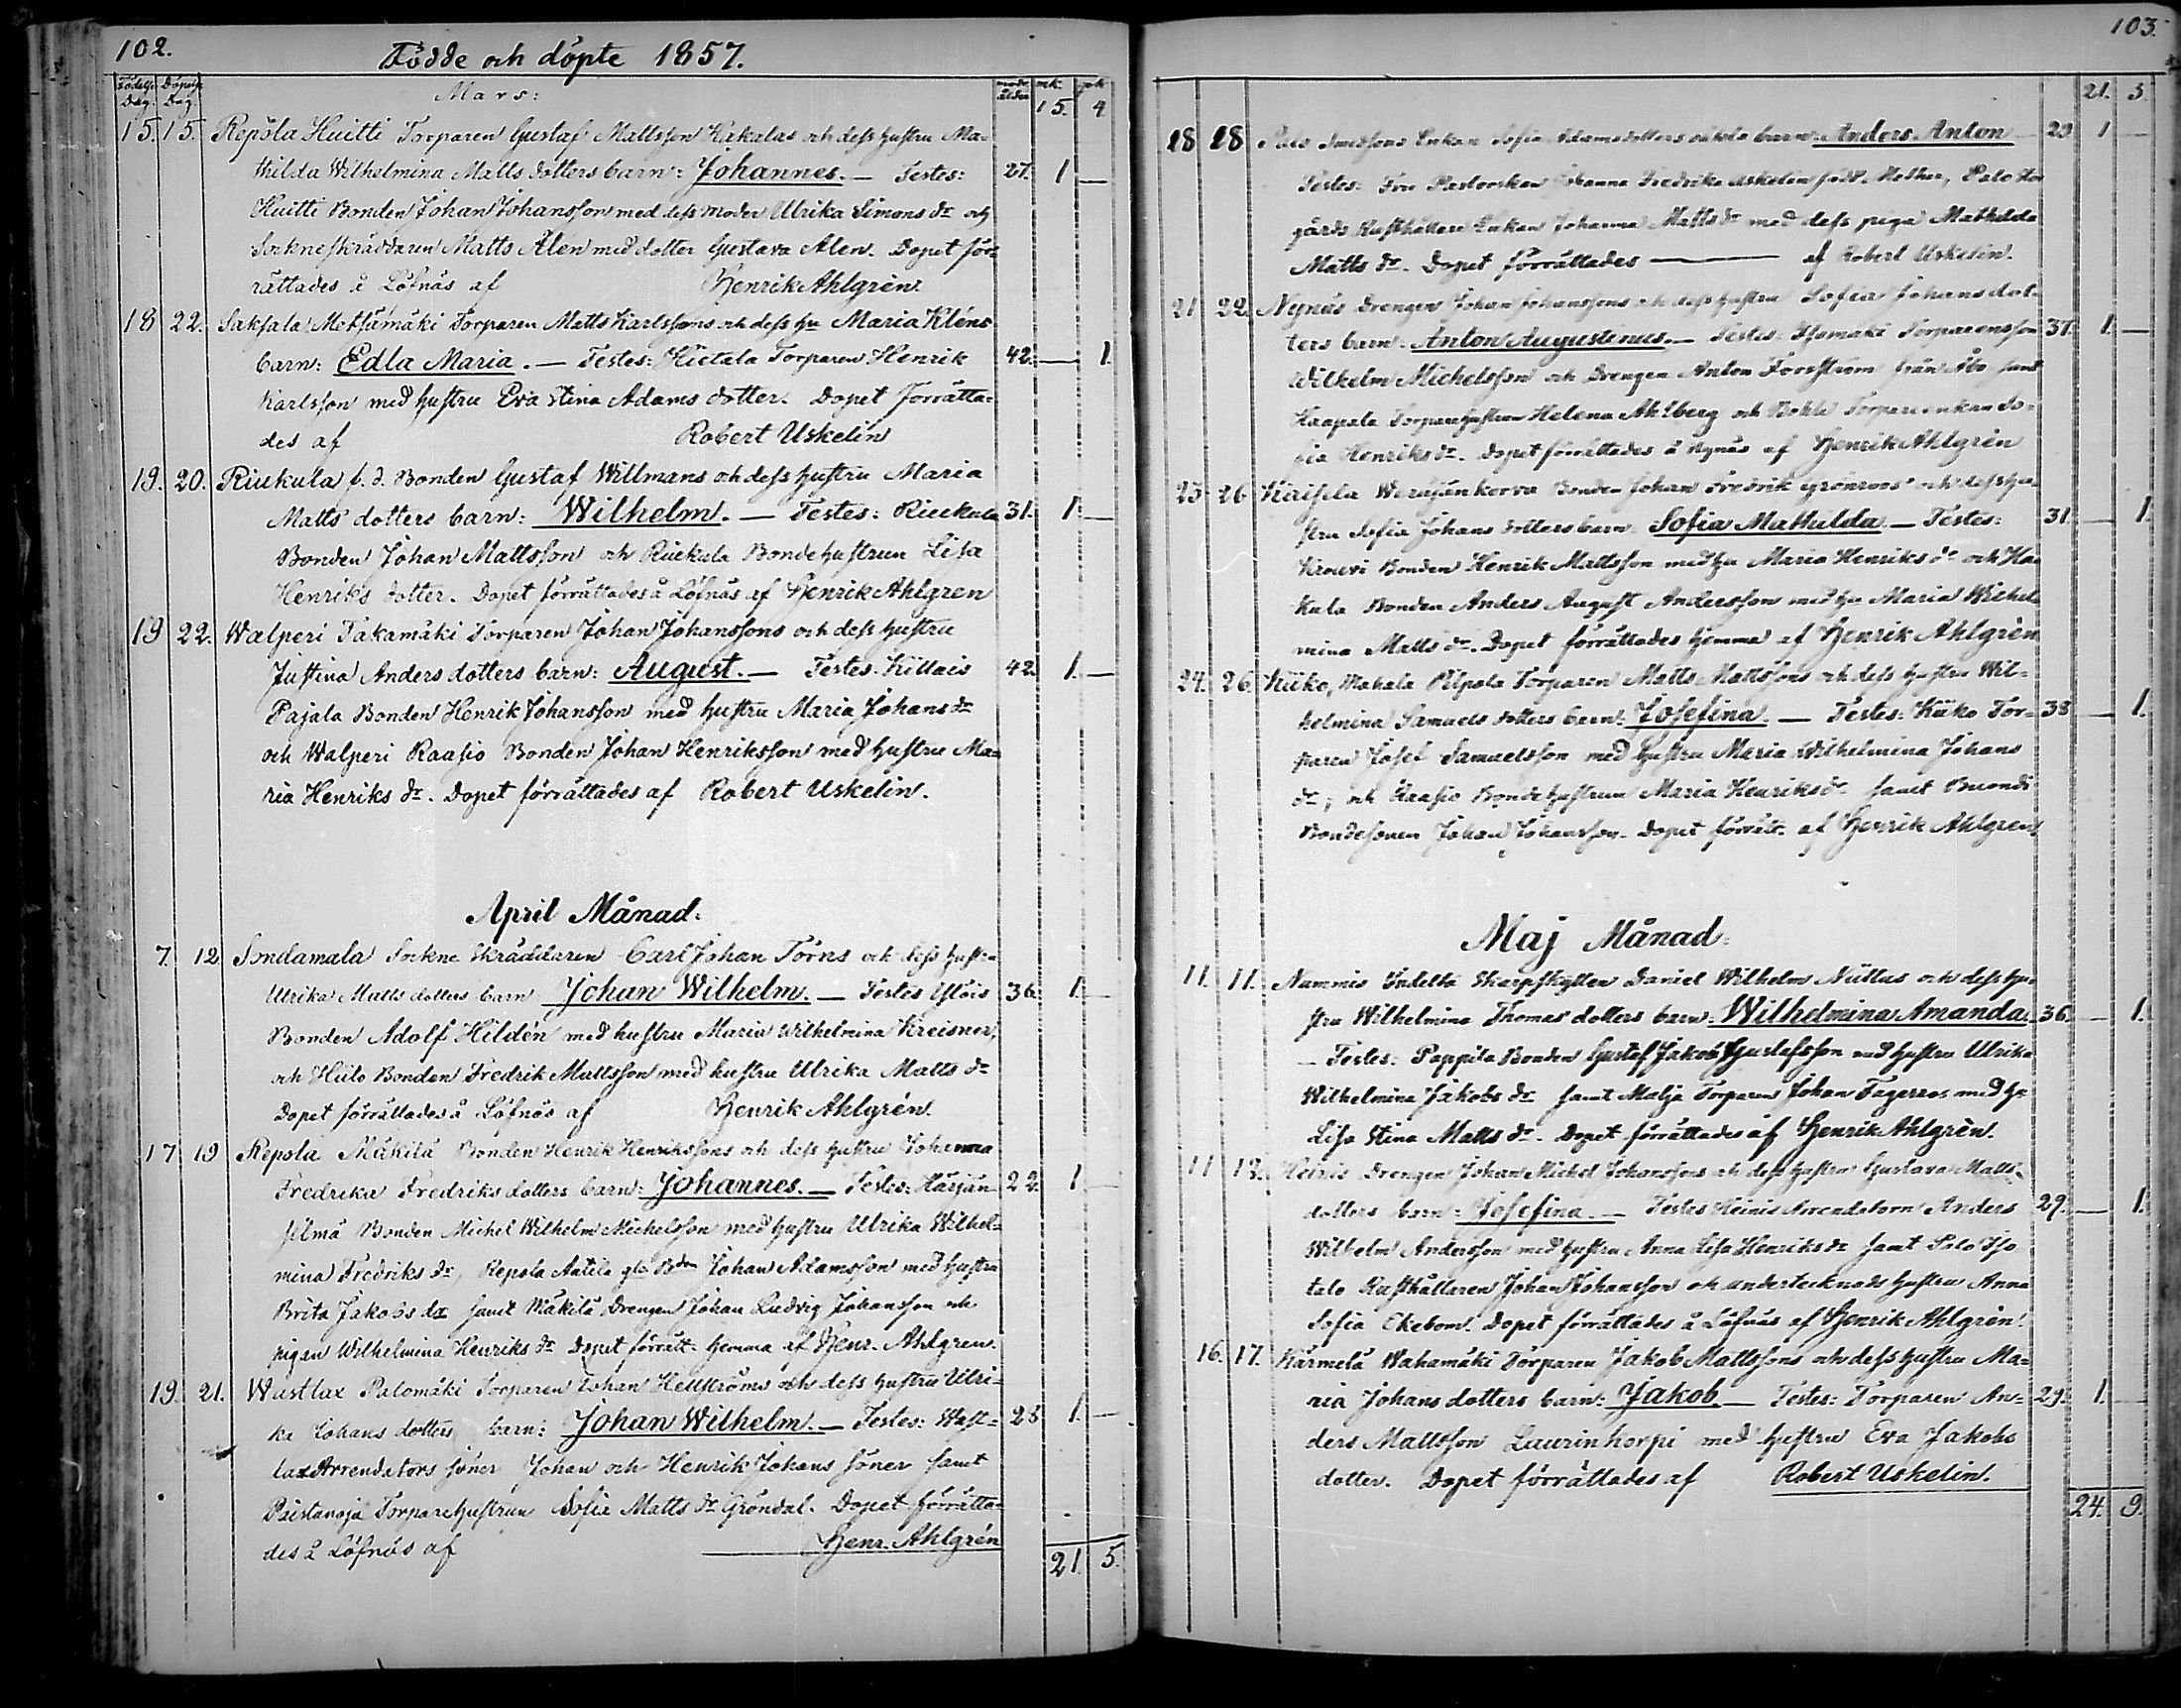 102.
Födde och döpte 1857.
Födelse Dag. Döpelse Dag. Mars: moder ålder mk. qk
15. 4
15. 15. Repola Huitti Torparen Gustaf Mattsson Kakalas och dess hustru Ma-
thilda Wilhelmina Matts dotters barn: Johannes. — Testes: 27. 1 —
Huitti Bonden Johan Johansson med dess moder Ulrika Simons dr och
Sockneskräddaren Matts Alen med dotter Gustava Alen. Dopet för-
rättades å Löfnäs af Henrik Ahlgrén.
18 22. Saksala Metsämäki Torparen Matts Karlssons och dess hu Maria Kléns
barn: Edla Maria. — Testes: Hietala Torparen Henrik 42. — 1.
Karlsson med hustru Eva Stina Adams dotter. Dopet förrätta-
des af Robert Uskelin
19. 20. Riukula f. d. Bonden Gustaf Willmans och dess hustru Maria
Matts dotters barn: Wilhelm. — Testes: Riukula 31. 1. —
Bonden Johan Mattsson och Riukula Bondehustrun Lisa
Henriks dotter. Dopet förrättades å Löfnäs af Henrik Ahlgren
19 22. Walperi Takamäki Torparen Johan Johanssons och dess hustru
Justina Anders dotters barn: August. — Testes: Killais 42. 1. —
Pajala Bonden Henrik Johansson med hustru Maria Johans dr
och Walperi Raasio Bonden Johan Henriksson med hustru Ma-
ria Henriks dr. Dopet förrättades af Robert Uskelin.
April Månad:
7. 12 Sondamala Sockne Skräddaren Carl Johan Törns och dess hustru
Ulrika Matts dotters barn Johan Wilhelm. — Testes Yläis 36. 1. —
Bonden Adolf Hildén med hustru Maria Wilhelmina Kreisner,
och Hiilo Bonden Fredrik Mattsson med hustru Ulrika Matts dr
Dopet förrättades å Löfnäs af Henrik Ahlgrén.
17 19 Repola Mäkilä Bonden Henrik Henrikssons och dess hustru Johanna
Fredrika Fredriks dotters barn: Johannes. — Testes: Härjän- 22. 1 —
silmä Bonden Michel Wilhelm Michelsson med hustru Ulrika Wilhel-
mina Fredriks dr, Repola Antila gla Bden Johan Adamsson med hustru
Brita Jakobs dr samt Mäkilä Drengen Johan Ludvig Johansson och
pigan Wilhelmina Henriks dr Dopet förrätt. hemma af Henr. Ahlgren.
19. 21. Wastlax Palomäki Torparen Johan Hellströms och dess hustru Ulri-
ka Johans dotters barn: Johan Wilhelm. — Testes: Wast- 28 1. —
lax Arrendators söner Johan och Henrik Johans söner samt
Torparehustrun Sofia Matts dr Gröndal. Dopet förrätta-
des å Löfnäs af Henr. Ahlgrén
21. 5.
103.
21. 5.
28 28 Enkan Sofia Adamsdotters oäkta barn: Anders Anton — 29 1 —
Testes: Fru Pastorskan Johanna Fredrika Uskelin född Palo
gårds Rusthållare Enkan Johanna Matts dr med dess piga Mathilda
Matts dr. Dopet förrättades — af Robert Uskelin.
21 22. Nynäs Drengen Johan Johanssons och dess hustru Sofia Johans dot-
ters barn: Anton Augustinus. — Testes: Isomäki Torparensson 37. 1. —
Wilhelm Michelsson och Drengen Anton Forsström från Åbo samt
Haapala Torparehustrun Helena Ahlberg och Torpareenkan So-
fia Henriks dr. Dopet förrättades å Nynäs af Henrik Ahlgrén
25 26 Kaisela Weräjänkorva Bonden Johan Fredrik Grönroos och dess hu-
stru Sofia Johans dotters barn: Sofia Mathilda. — Testes: 31. — 1.
Krouvi Bonden Henrik Mattsson med hu Maria Henriks dr och Ka-
kula Bonden Anders August Andersson med hu Maria Wilhel-
mina Matts dr. Dopet förrättades hemma af Henrik Ahlgrén
24. 26. Kiiko, Mahala Pilpola Torparen Matts Mattssons och dess hustru Wil-
helmina Samuels dotters barn: Josefina. — Testes: Kiiko Tor- 38 — 1.
paren Josef Samuelsson med hustru Maria Wilhelmina Johans
dr; och Raasio Bondehustrun Maria Henriks dr samt
Bondesonen Johan Johansson. Dopet förrätt. af Henrik Ahlgren
Maj Månad.
11. 11. Nummis Indelta Skarpskytten Daniel Wilhelm Nüttas och dess hu-
stru Wilhelmina Thomas dotters barn: Wilhelmina Amanda. 36. — 1.
— Testes: Pappila Bonden Gustaf Jakob Gustafsson med hustru Ulrika
Wilhelmina Jakobs dr samt Malja Torparen Johan Fagerroos med hu
Lisa Stina Matts dr. Dopet förrättades af Henrik Ahlgrén.
11 12. Heinis Drengen Johan Michel Johanssons och dess hustru Gustava Matts
dotters barn: Josefina. — Testes Heinis Arrendatorn Anders 29. — 1.
Wilhelm Andersson med hustru Anna Lisa Henriks dr samt Palo Iso
talo Rusthållaren Johan Johansson och undertecknads hustru Anna
Sofia Ekebom. Dopet förrättades å Löfnäs af Henrik Ahlgrén.
16. 17. Kärmelä Wahamäki Torparen Jakob Mattssons och dess hustru Ma-
ria Johans dotters barn: Jakob. — Testes: Torparen An- 29. 1. —
ders Mattsson Laurinkorpi med hustru Eva Jakobs
dotter. Dopet förrättades af Robert Uskelin.
24. 9.